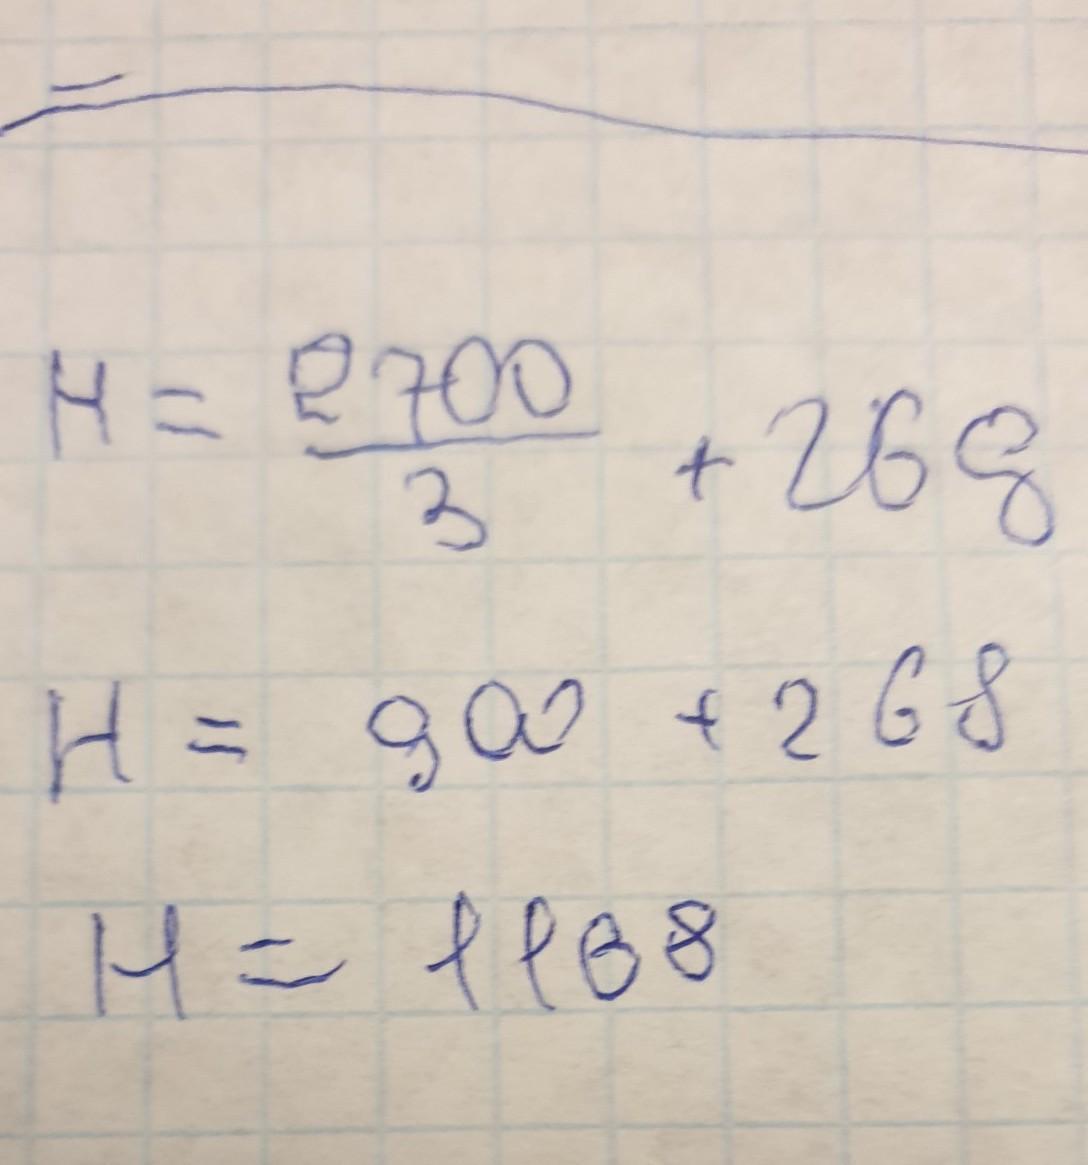 H = 2700/3 + 268
H = 900 + 268
H = 1168